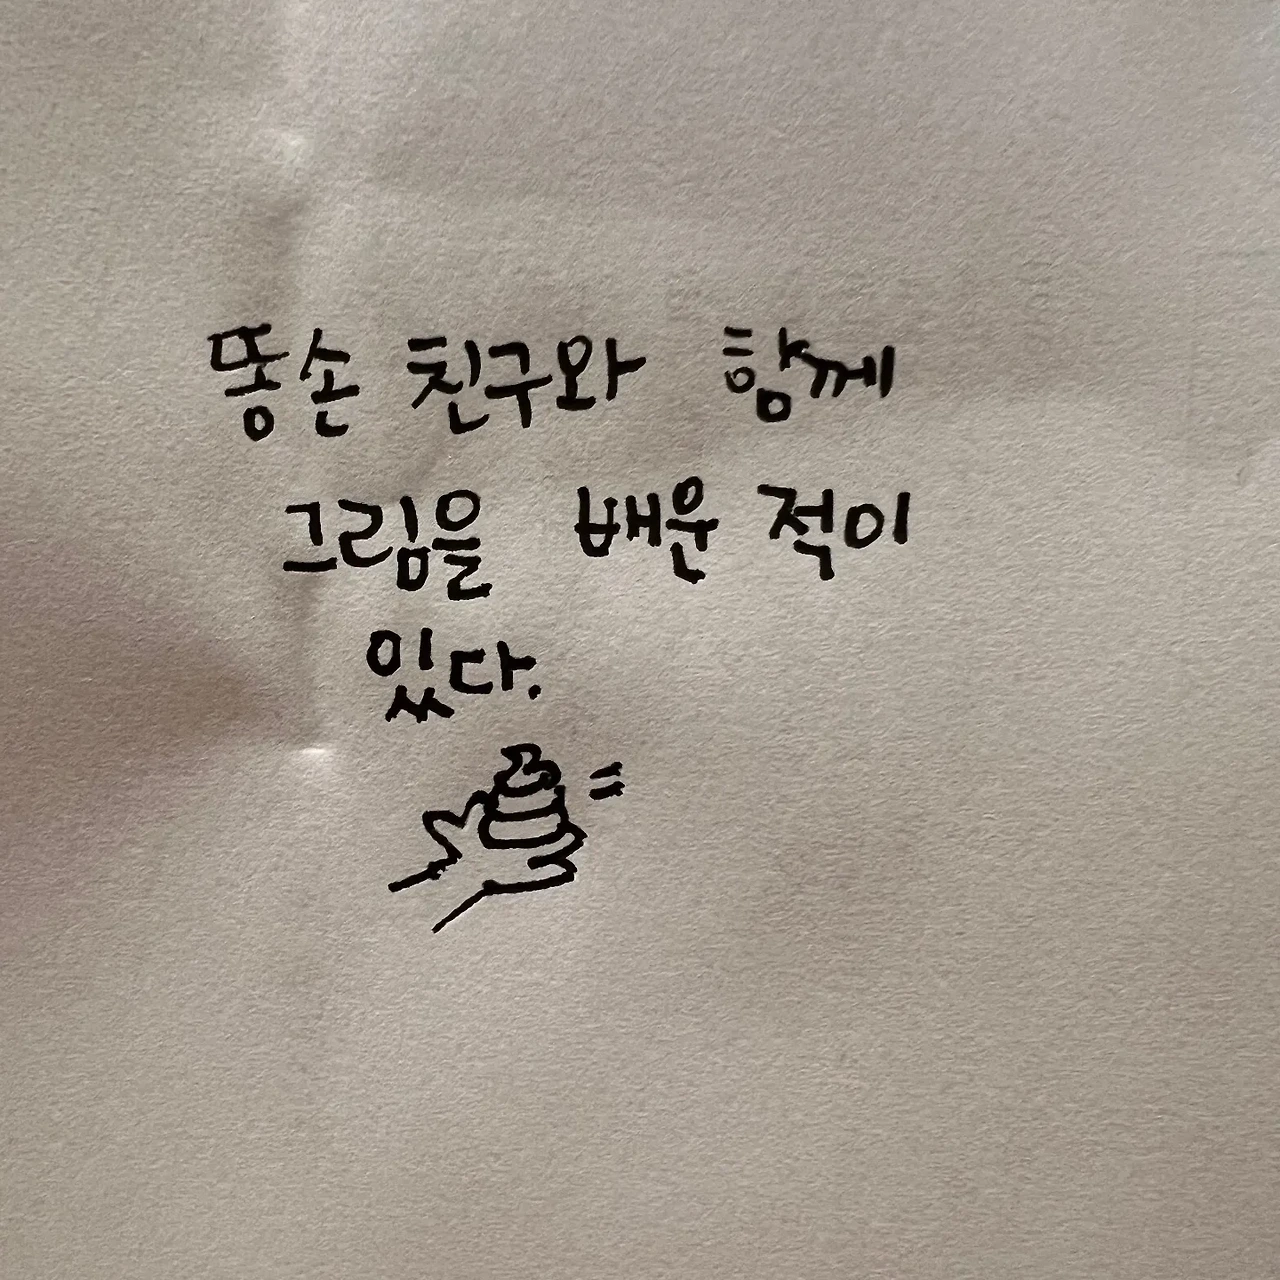 똥손 친구와 함께
그림을 배운 적이
있다.